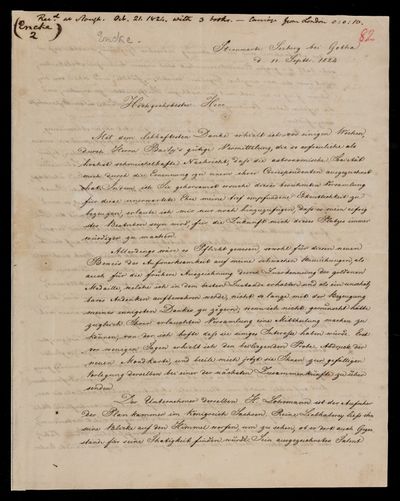 Recd at Slough. Oct. 21. 1824. with 3 books. — Carriage from London 0:0:10.
(Encke)
2
Encke.
82
Sternwarte Seeberg bei Gotha
d. 11. Septr. 1824
Hochgeehrtester Herr
Mit dem lebhaftesten Danke erhielt ich vor einigen Wochen,
durch Herrn Baily's gütige Vermittelung, die so erfreuliche als
höchst schmeichelhafte Nachricht, daß die astronomische Societät
mich durch die Ernennung zu einem ihrer Correspondenten ausgezeichnet
hat. Indem ich Sie gehorsamst ersuche dieser berühmten Versammlung
für diese ehrenvolle Ehre meine tief empfundene Erkenntlichkeit zu
bezeugen, erlaube ich mir nur noch hinzuzufügen, daß es mein eifrig
stes Bestreben seyn wird, für die Zukunft mich dieses Platzes immer
würdiger zu machen.
Allerdings wäre es Pflicht gewesen sowohl für diesen neuen
Beweis der Aufmerksamkeit auf meine schwachen Bemühungen, als
auch für die frühere Auszeichnung durch Zuerkennung der goldenen
Medaille, welche ich in dem besten Zustande erhalten und als ein unschätz
bares Andenken aufbewahren werde, nicht so lange mit der Bezeugung
meines innigsten Dankes zu zögern, wenn ich nicht gewünscht hätte
zugleich Ihrer erlauchten Versammlung eine Mittheilung machen zu
können, von der ich hoffe daß sie einiges Interesse haben würde. Erst
vor wenigen Tagen erhielt ich den beiliegenden Probe Abdruck der
neuen Mondkarte, und beeile mich jetzt sie Ihnen zur gefälligen
Vorlegung derselben bei einer der nächsten Zusammenkünfte zu über
senden.
Der Unternehmer derselben H. Lohrmann ist der Aufseher
der Plankammer im Königreich Sachsen. Reine Liebhaberey ließ ihn
seine Blicke auf den Himmel werfen, um zu sehen, ob er dort auch Gegen
stände für seine Thätigkeit finden würde. Sein ausgezeichnetes Talent